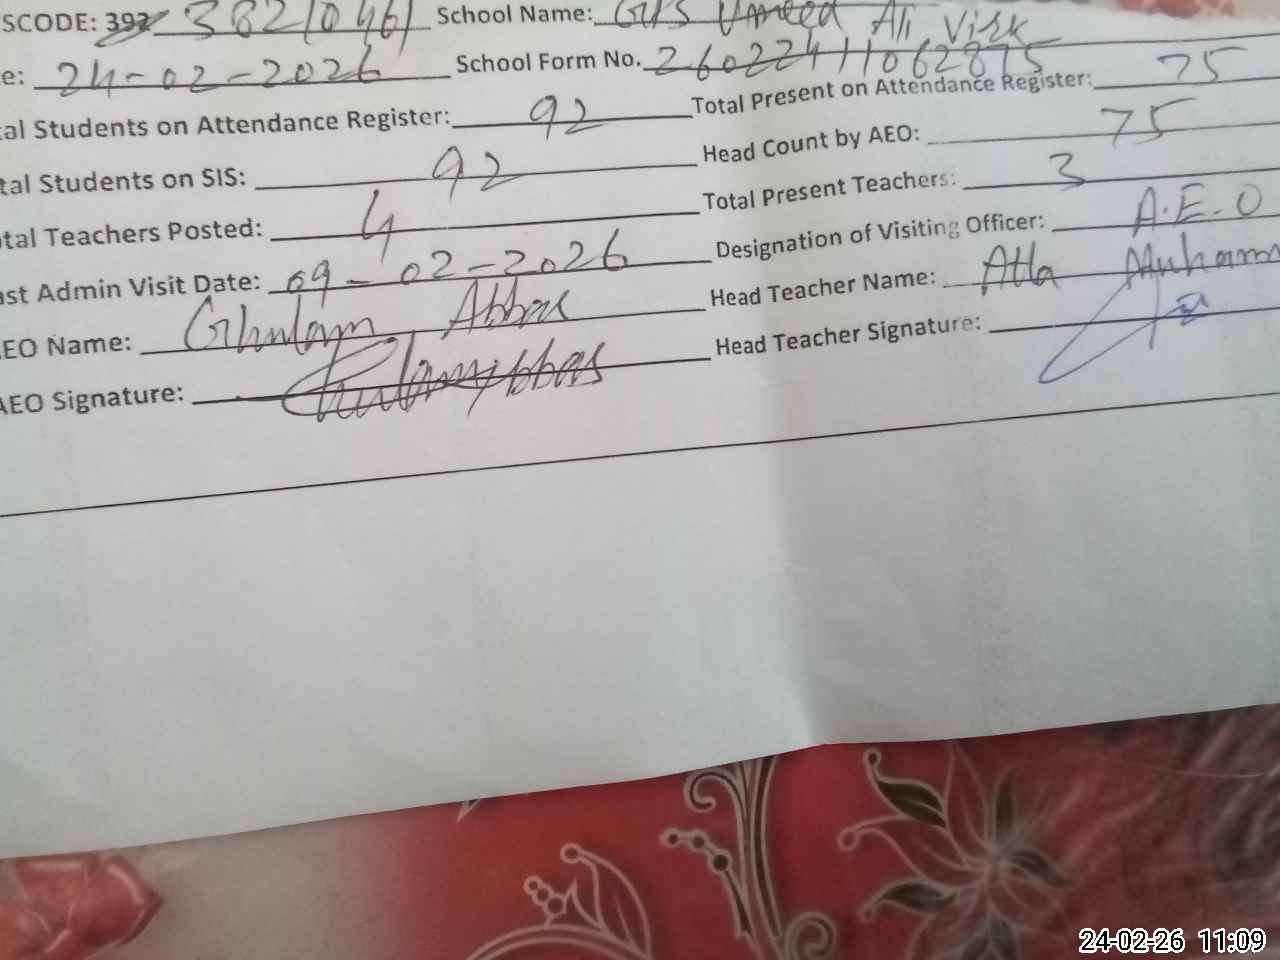 SCODE: 392 38210461 School Name: GHS Umeed Ali Virk
e: 24-02-2026 School Form No. 26022411062875
al Students on Attendance Register: 92 Total Present on Attendance Register: 75
tal Students on SIS: 92 Head Count by AEO: 75
tal Teachers Posted: 4 Total Present Teachers: 3
ast Admin Visit Date: 09-02-2026 Designation of Visiting Officer: A.E.O
EO Name: Ghulam Abbas Head Teacher Name: Atta Muham
AEO Signature: Ghulam Abbas Head Teacher Signature:
24-02-26 11:09